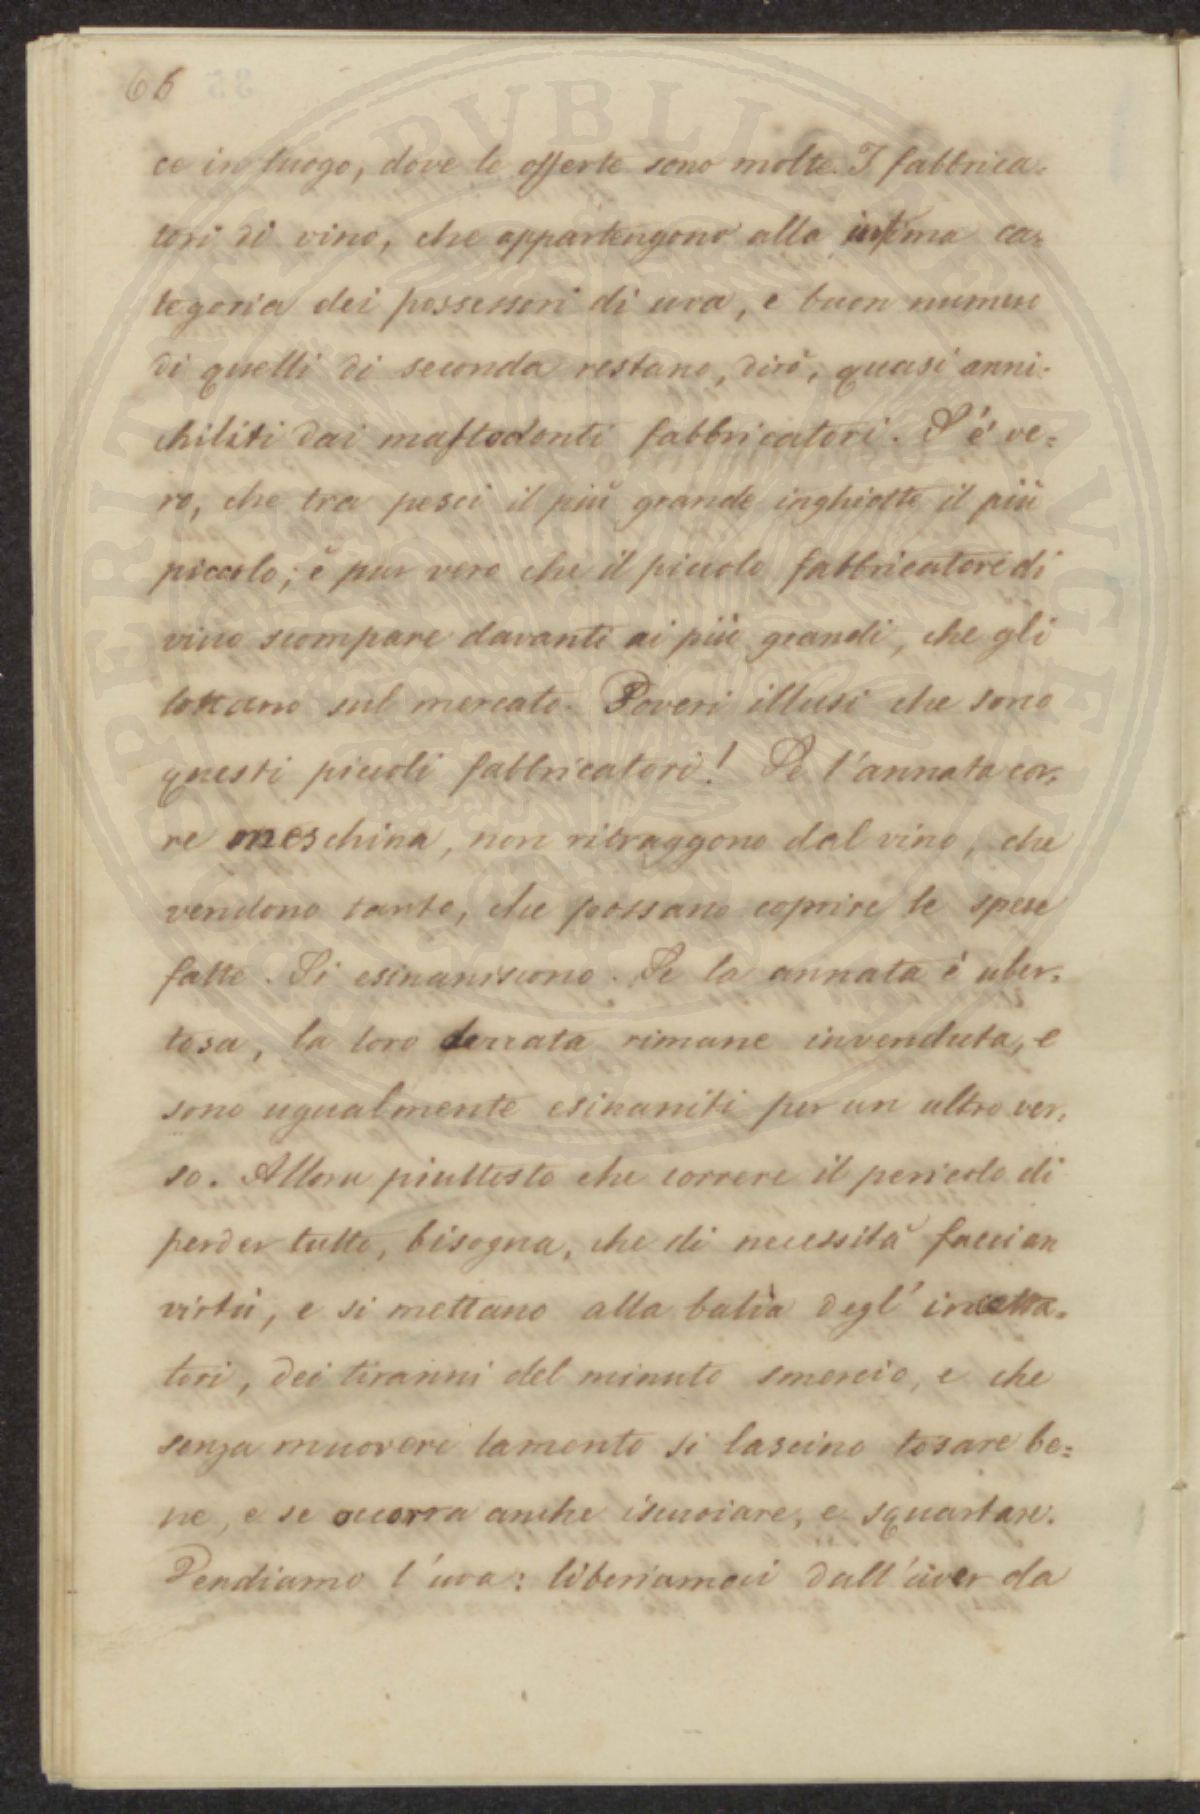 66
ce in luogo, dove le offerte sono molte. I fabbrica-
tori di vino, che appartengono alla infima ca=
tegoria dei possessori di uva, e buon numero
di quelli di seconda restano, dirò, quasi anni-
chiliti dai mastodonti fabbricatori. S'è ve=
ro, che tra pesci il più grande inghiotte il più
piccolo; è pur vero che il piccolo fabbricatore di
vino scompare davanti ai più grandi, che gli
lottano sul mercato. Poveri illusi che sono
questi piccoli fabbricatori! Se l'annata cor-
re meschina, non ritraggono dal vino, che
vendono tanto, che possano coprire le spese
fatte. Si esinaniscono. Se la annata è uber-
tosa, la loro derrata rimane invenduta, e
sono ugualmente esinaniti per un altro ver-
so. Allora piuttosto che correre il pericolo di
perder tutto, bisogna, che di necessità faccian
virtù, e si mettano alla balìa degl' incetta-
tori, dei tiranni del minuto smercio, e che
senza muovere lamento si lascino tosare be=
ne, e se occorra anche iscuoiare, e squartare.
Vendiamo l'uva: liberiamoci dall'aver da
PUBLICE AVGE SPERITATI